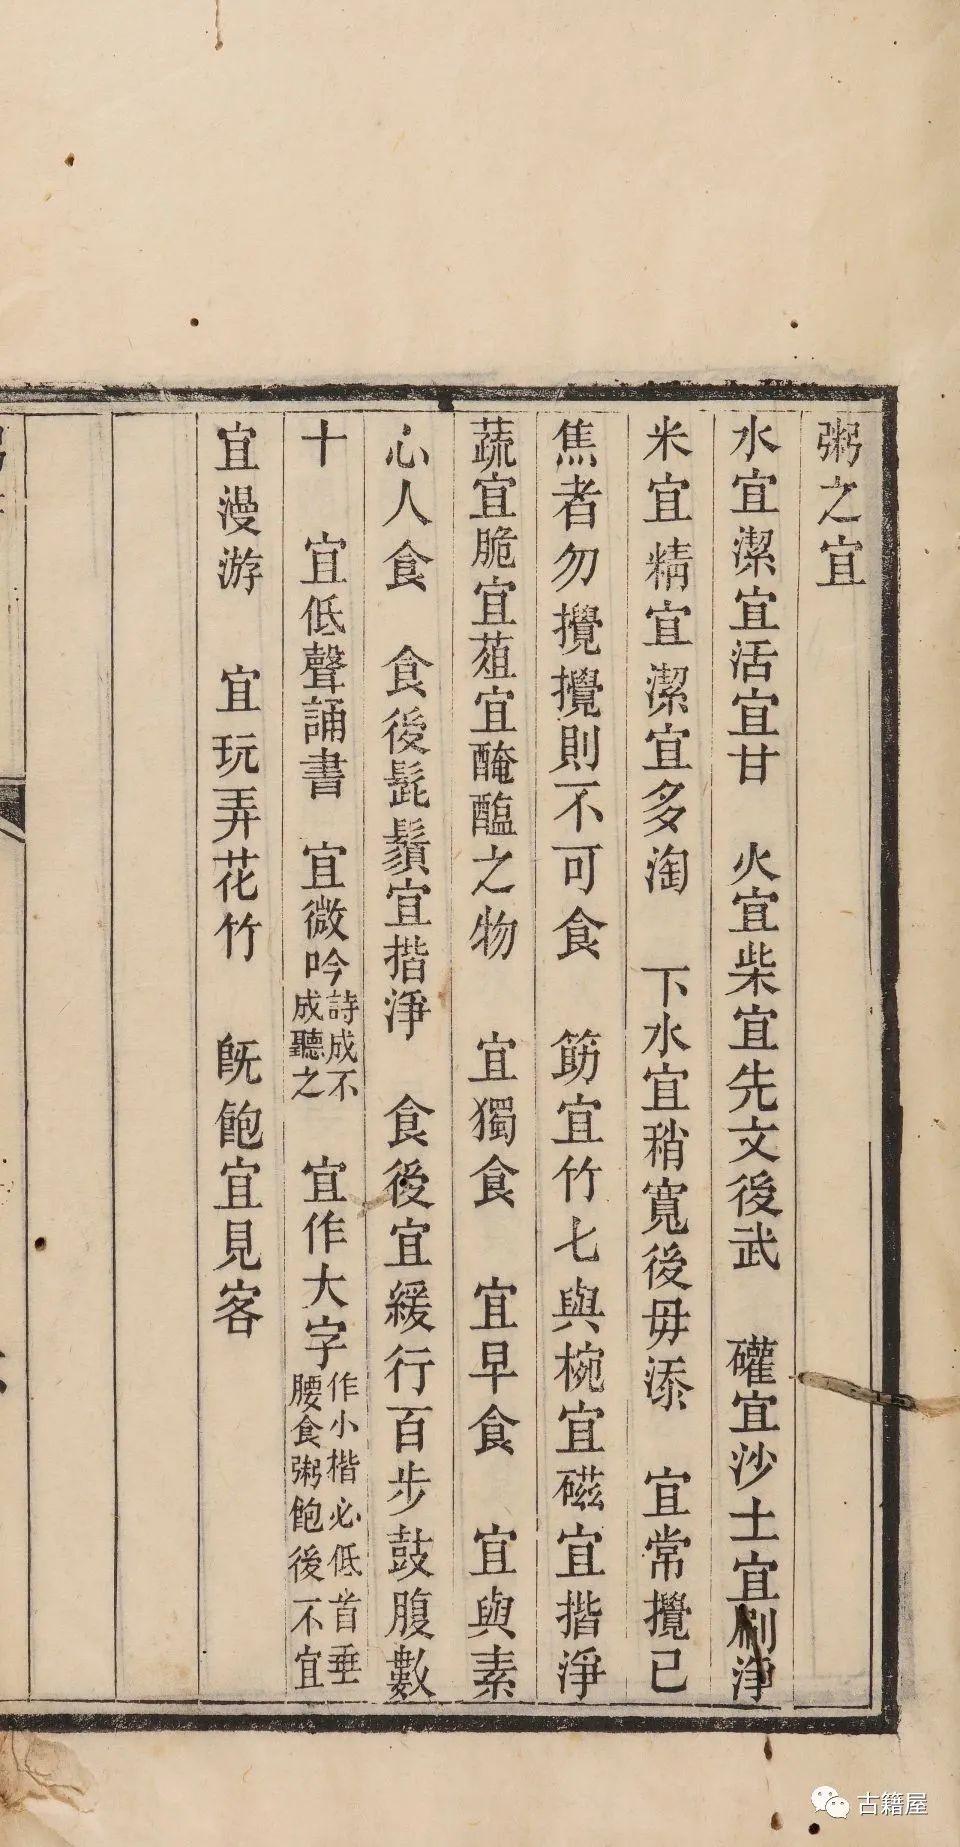 粥之宜
水宜潔宜活宜甘　火宜柴宜先文後武　礶宜沙土宜刷淨
米宜精宜潔宜多淘　下水宜稍寬後毋添　宜常攪已
焦者勿攪攪則不可食　筯宜竹七與椀宜磁宜揩淨
蔬宜脆宜葅宜醃醢之物　宜獨食　宜早食　宜與素
心人食　食後髭鬚宜揩淨　食後宜緩行百步鼓腹數
十　宜低聲誦書　宜微吟詩成不成聽之　宜作大字作小楷必低首垂腰食粥飽後不宜
宜漫游　宜玩弄花竹　旣飽宜見客
古籍屋